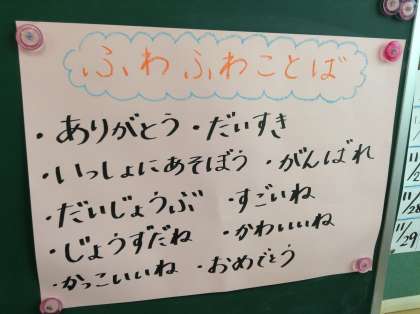 ふわふわことば
・ありがとう ・だいすき
・いっしょにあそぼう ・がんばれ
・だいじょうぶ ・すごいね
・じょうずだね ・かわいいね
・かっこいいね ・おめでとう
11/28
11/29